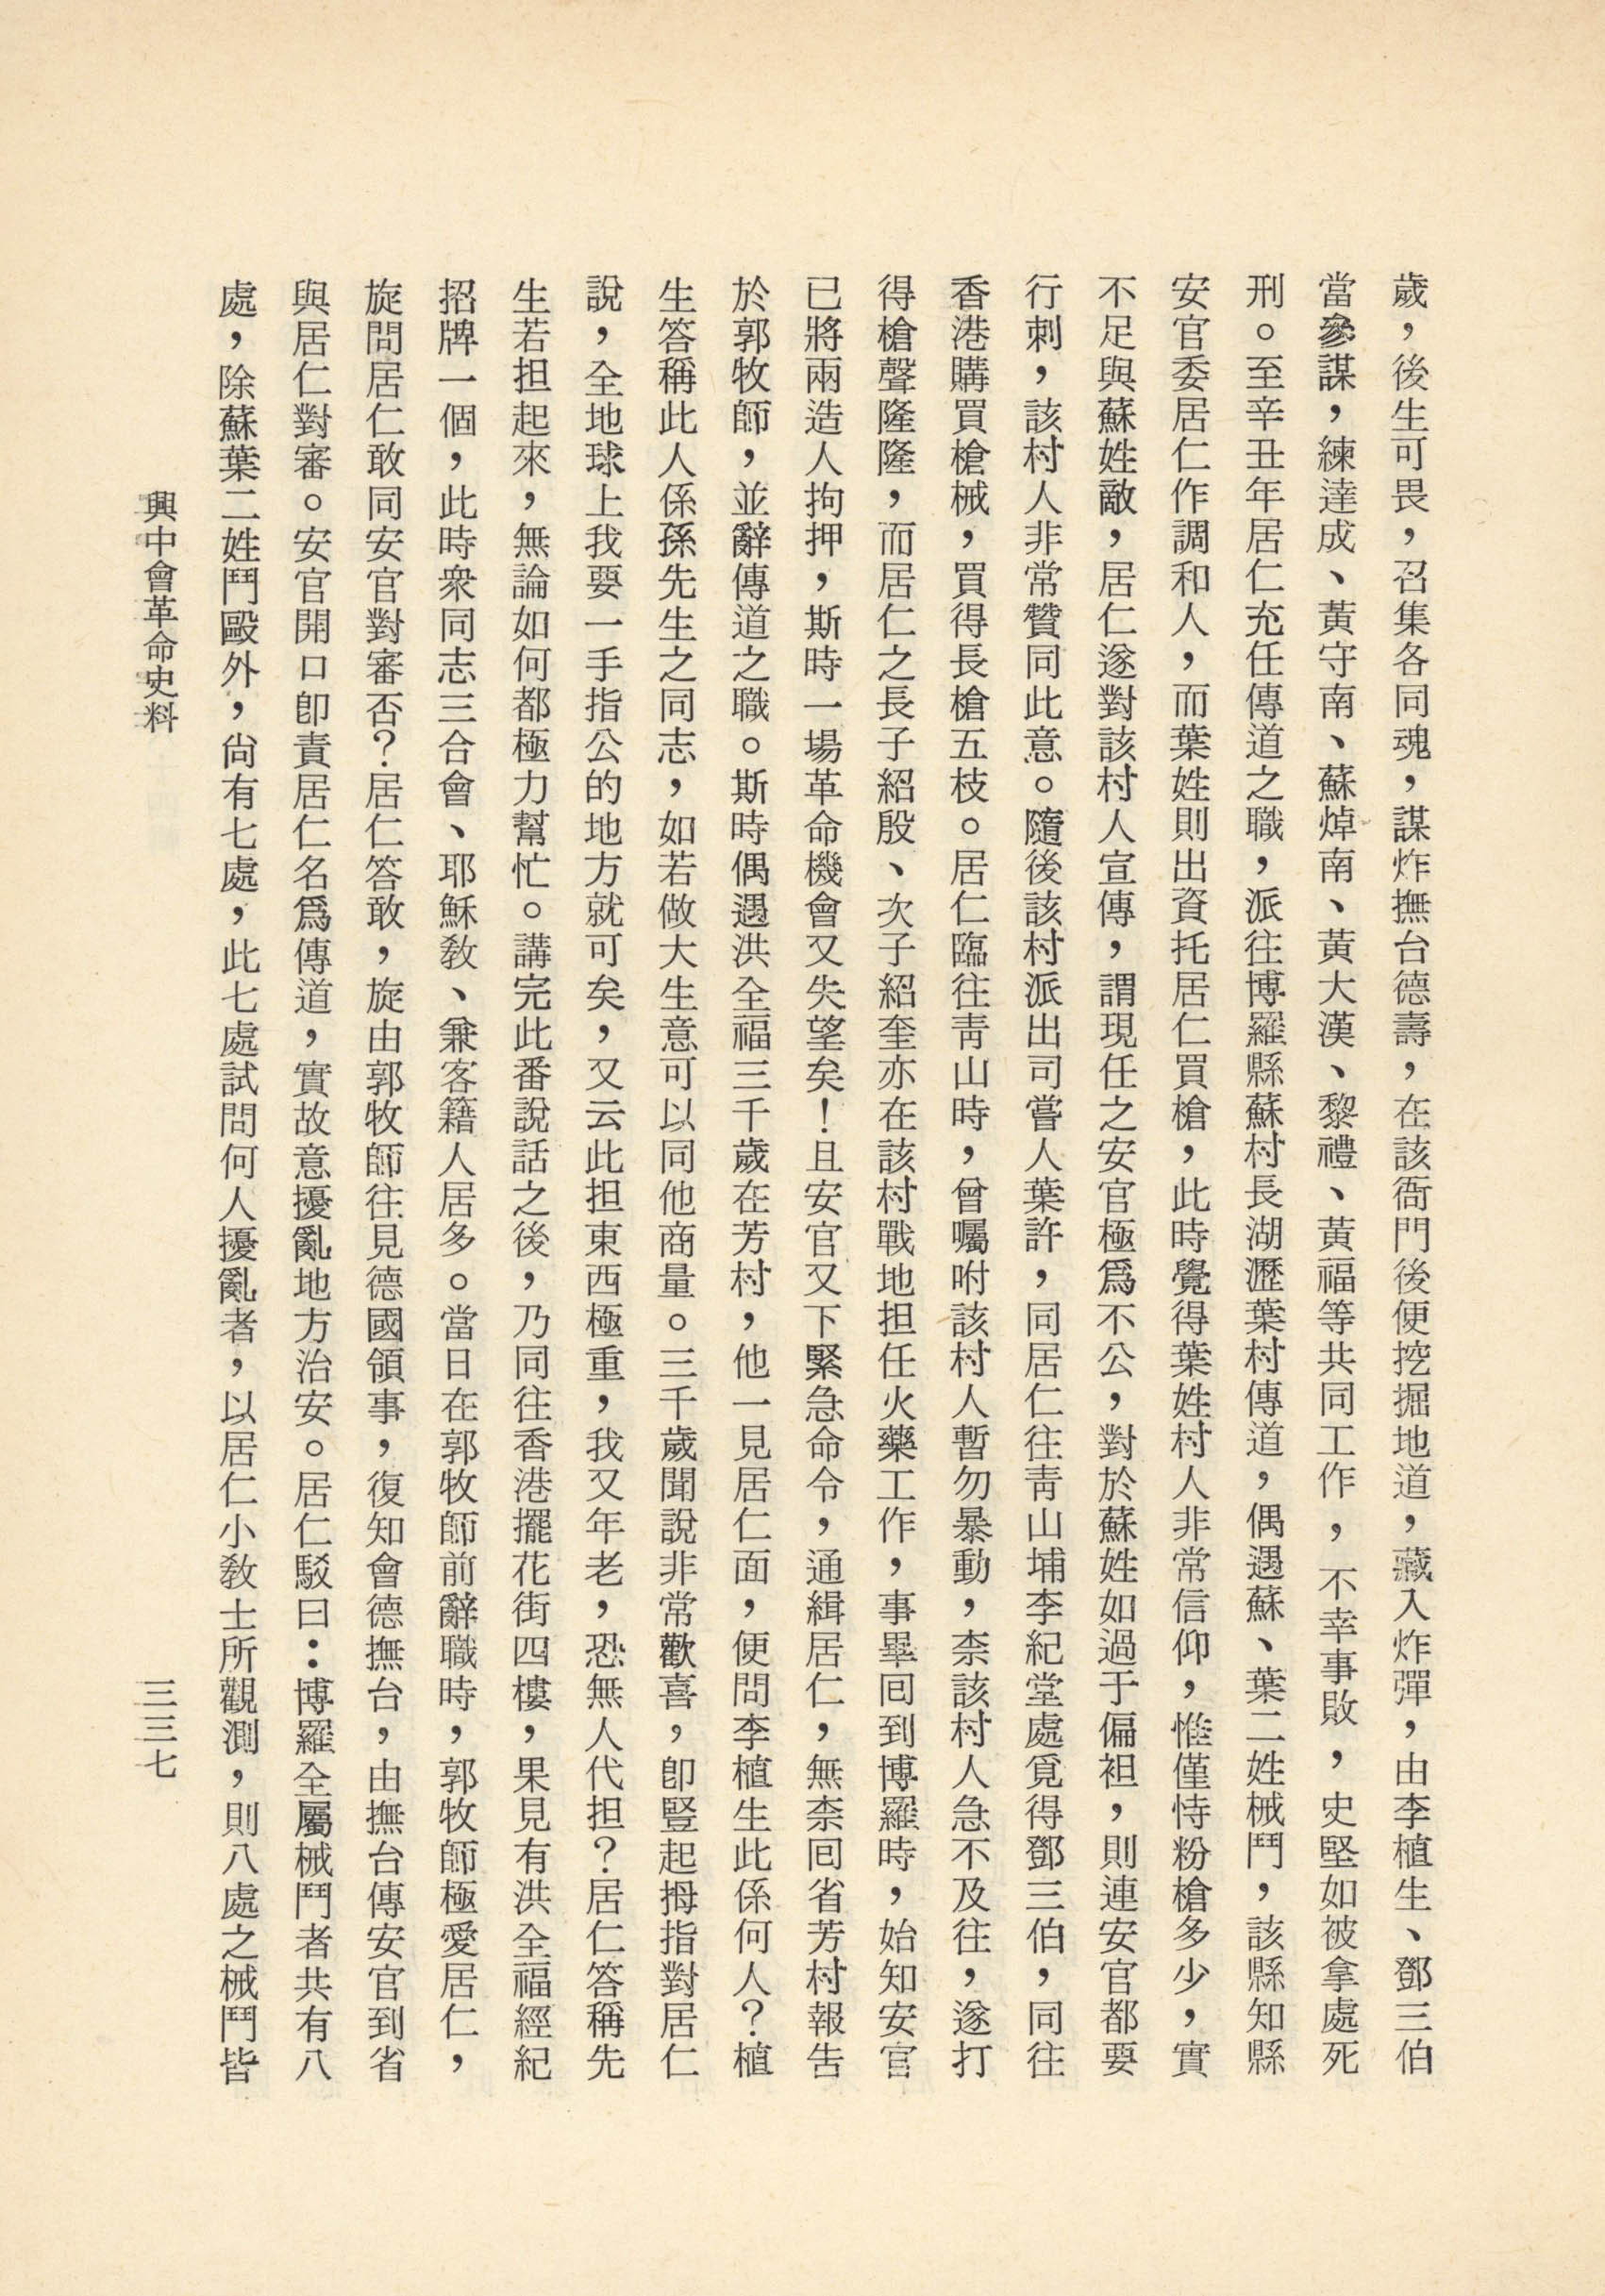 歲，後生可畏，召集各同魂，謀炸撫台德壽，在該衙門後便挖掘地道，藏入炸彈，由李植生、鄧三伯
當參謀，練達成、黃守南、蘇焯南、黃大漢、黎禮、黃福等共同工作，不幸事敗，史堅如被拿處死
刑。至辛丑年居仁充任傳道之職，派往博羅縣蘇村長湖瀝葉村傳道，偶遇蘇、葉二姓械鬥，該縣知縣
安官委居仁作調和人，而葉姓則出資托居仁買槍，此時覺得葉姓村人非常信仰，惟僅恃粉槍多少，實
不足與蘇姓敵，居仁遂對該村人宣傳，謂現任之安官極爲不公，對於蘇姓如過于偏袒，則連安官都要
行刺，該村人非常贊同此意。隨後該村派出司嘗人葉許，同居仁往靑山埔李紀堂處覓得鄧三伯，同往
香港購買槍械，買得長槍五枝。居仁臨往靑山時，曾囑咐該村人暫勿暴動，柰該村人急不及往，遂打
得槍聲隆隆，而居仁之長子紹殷、次子紹奎亦在該村戰地担任火藥工作，事畢囘到博羅時，始知安官
已將兩造人拘押，斯時一場革命機會又失望矣！且安官又下緊急命令，通緝居仁，無柰囘省芳村報告
於郭牧師，並辭傳道之職。斯時偶遇洪全福三千歲在芳村，他一見居仁面，便問李植生此係何人？植
生答稱此人係孫先生之同志，如若做大生意可以同他商量。三千歲聞說非常歡喜，卽豎起拇指對居仁
說，全地球上我要一手指公的地方就可矣，又云此担東西極重，我又年老，恐無人代担？居仁答稱先
生若担起來，無論如何都極力幫忙。講完此番說話之後，乃同往香港擺花街四樓，果見有洪全福經紀
招牌一個，此時衆同志三合會、耶穌敎、兼客籍人居多。當日在郭牧師前辭職時，郭牧師極愛居仁，
旋問居仁敢同安官對審否？居仁答敢，旋由郭牧師往見德國領事，復知會德撫台，由撫台傳安官到省
與居仁對審。安官開口卽責居仁名爲傳道，實故意擾亂地方治安。居仁駁曰：博羅全屬械鬥者共有八
處，除蘇葉二姓鬥毆外，尙有七處，此七處試問何人擾亂者，以居仁小敎士所觀測，則八處之械鬥皆
興中會革命史料
三三七